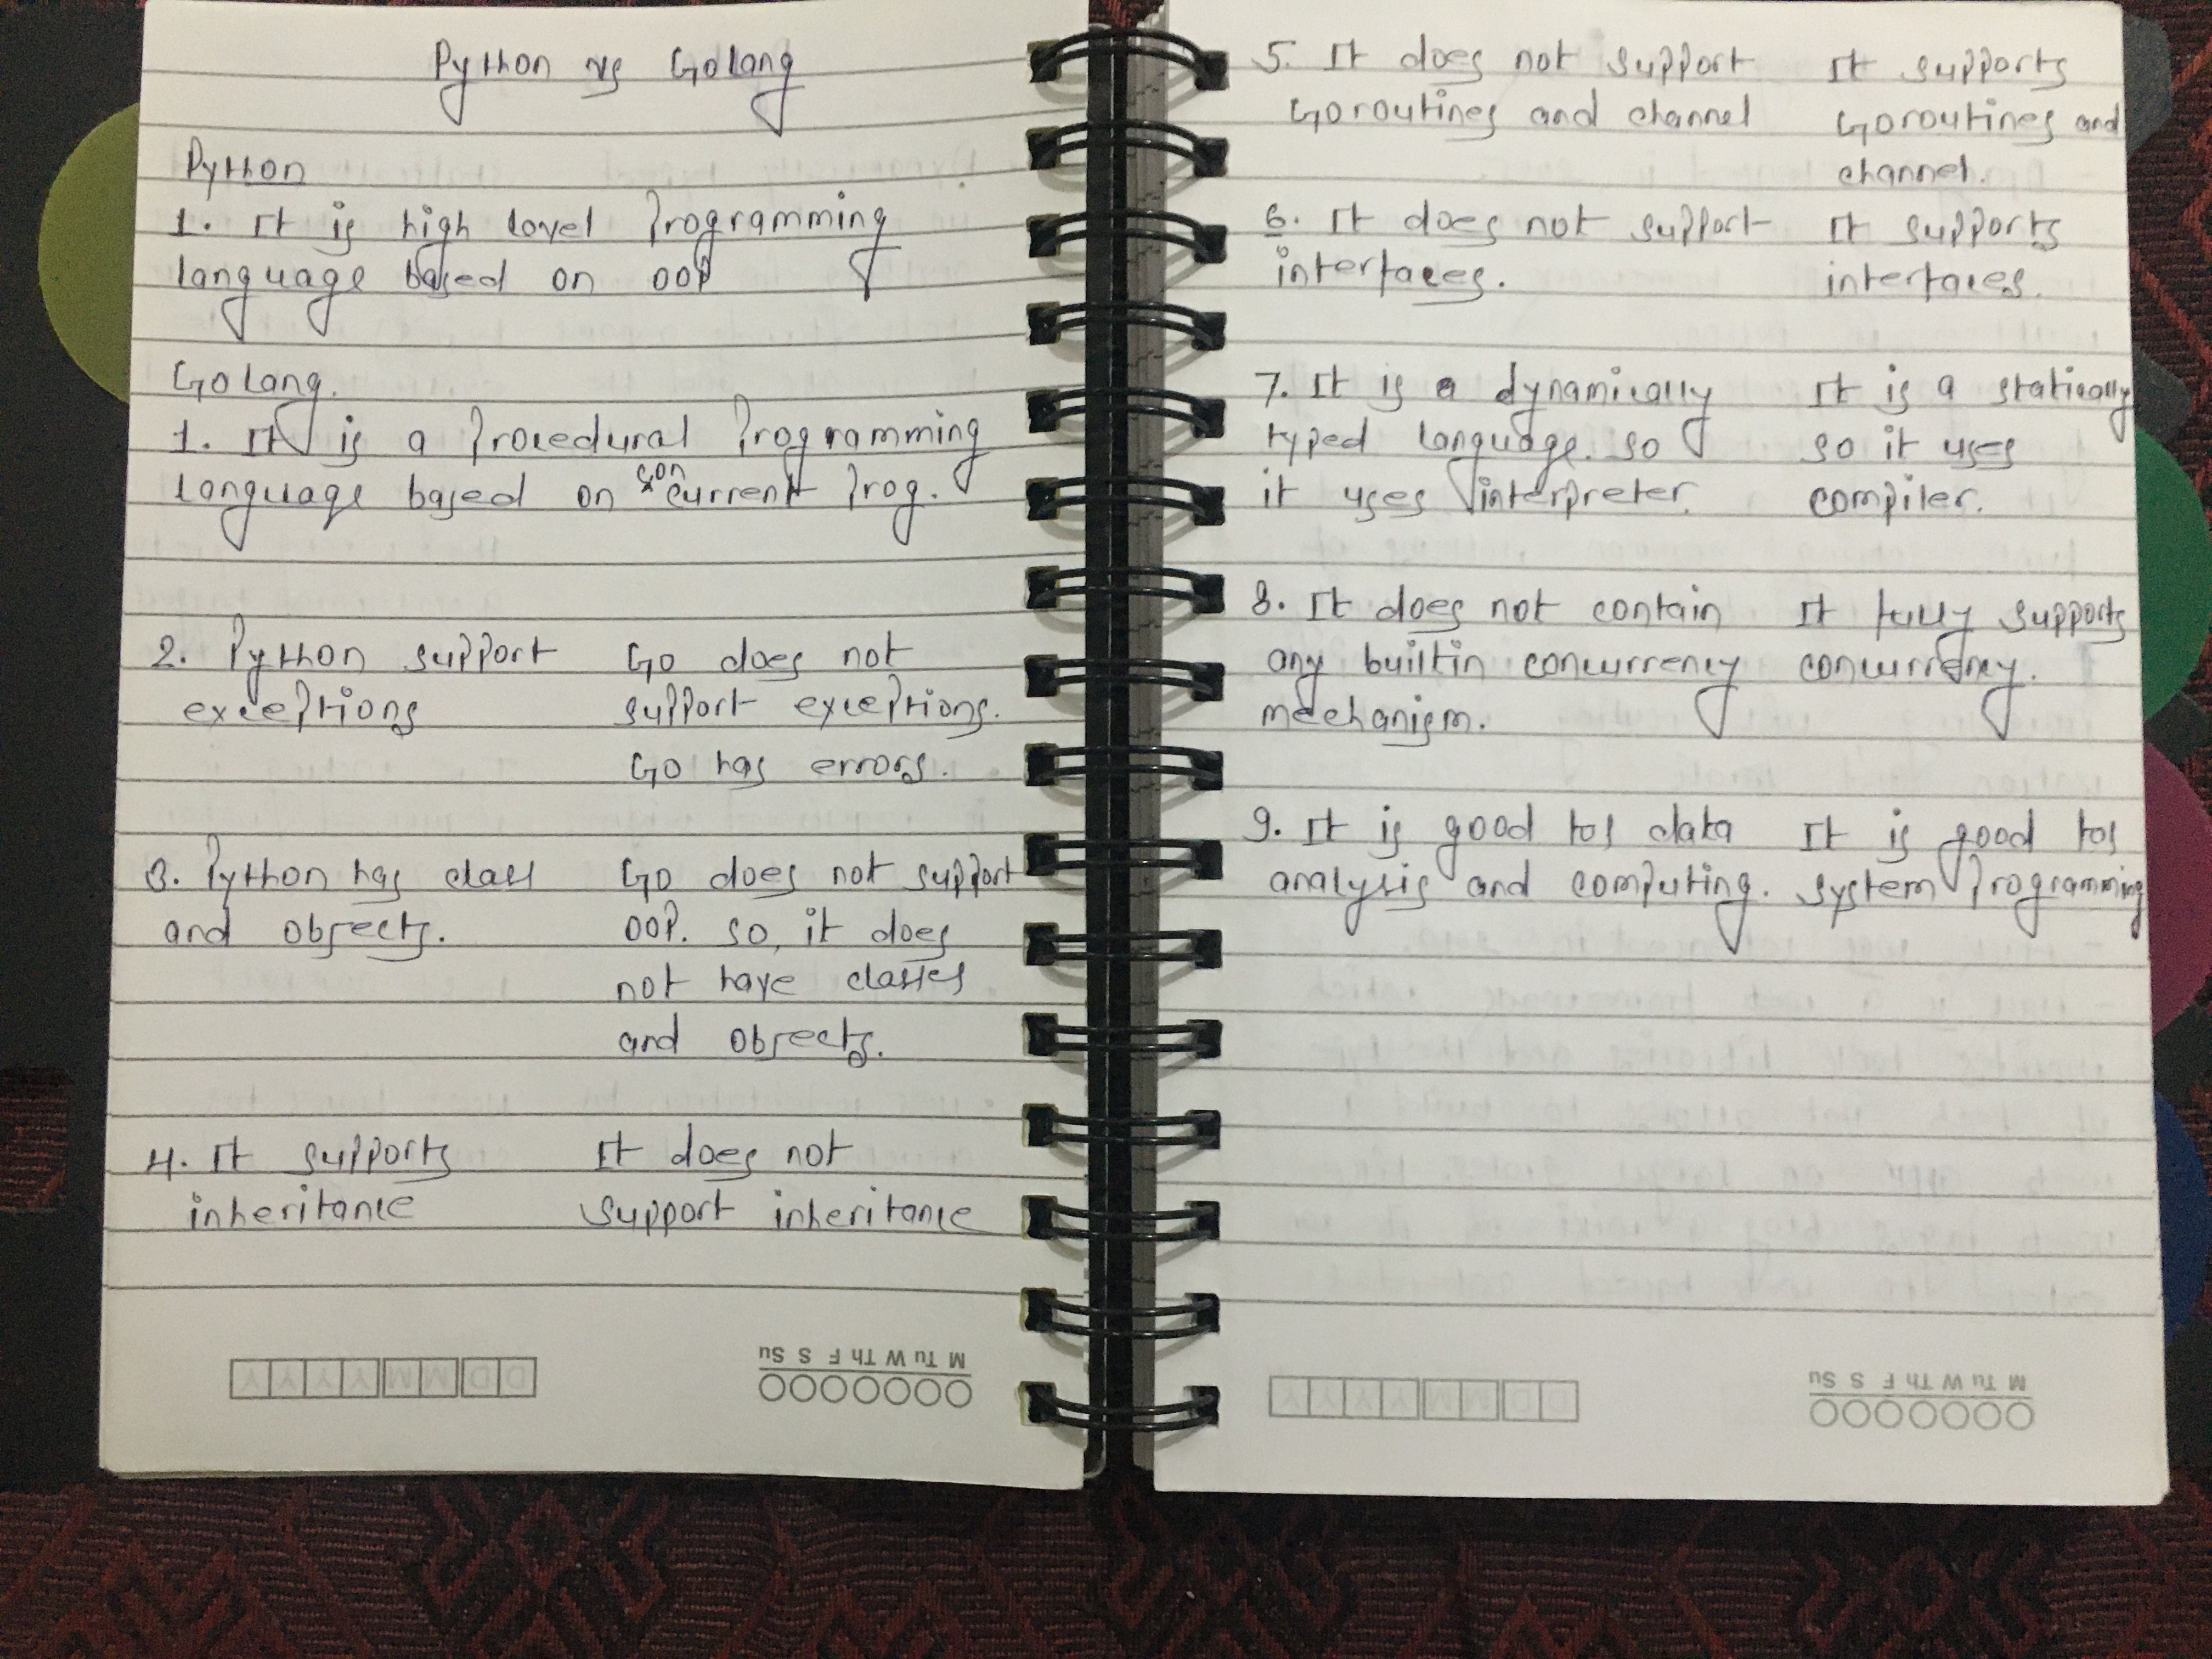 Python vs Golang
Python
1. It is high level Programming
language based on OOP
Golang.
1. It is a Procedural Programming
language based on concurrent Prog.
2. Python support
exceptions
Go does not
support exceptions.
Go has errors.
3. Python has class
and objects.
Go does not support
OOP. so, it does
not have classes
and objects.
4. It supports
inheritance
It does not
support inheritance
D D M M Y Y Y Y
M Tu W Th F S Su
5. It does not support
Goroutines and channel
It supports
Goroutines and
channel.
6. It does not support
interfaces.
It supports
interfaces.
7. It is a dynamically
typed language. so
it uses interpreter.
It is a statically
so it uses
compiler.
8. It does not contain
any builtin concurrency
mechanism.
It fully supports
concurrency.
9. It is good for data
analysis and computing.
It is good for
system Programming
D D M M Y Y Y Y
M Tu W Th F S Su